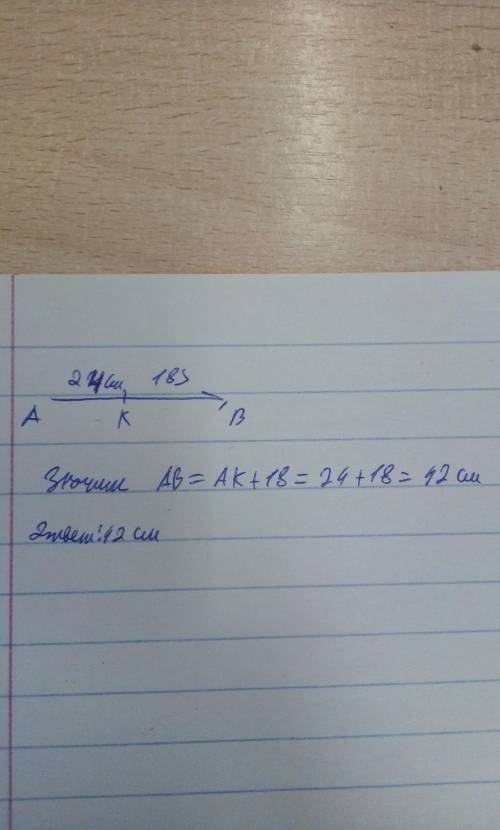 24см 18
A K B
Значит AB = AK + 18 = 24 + 18 = 42 см
Ответ: 42 см